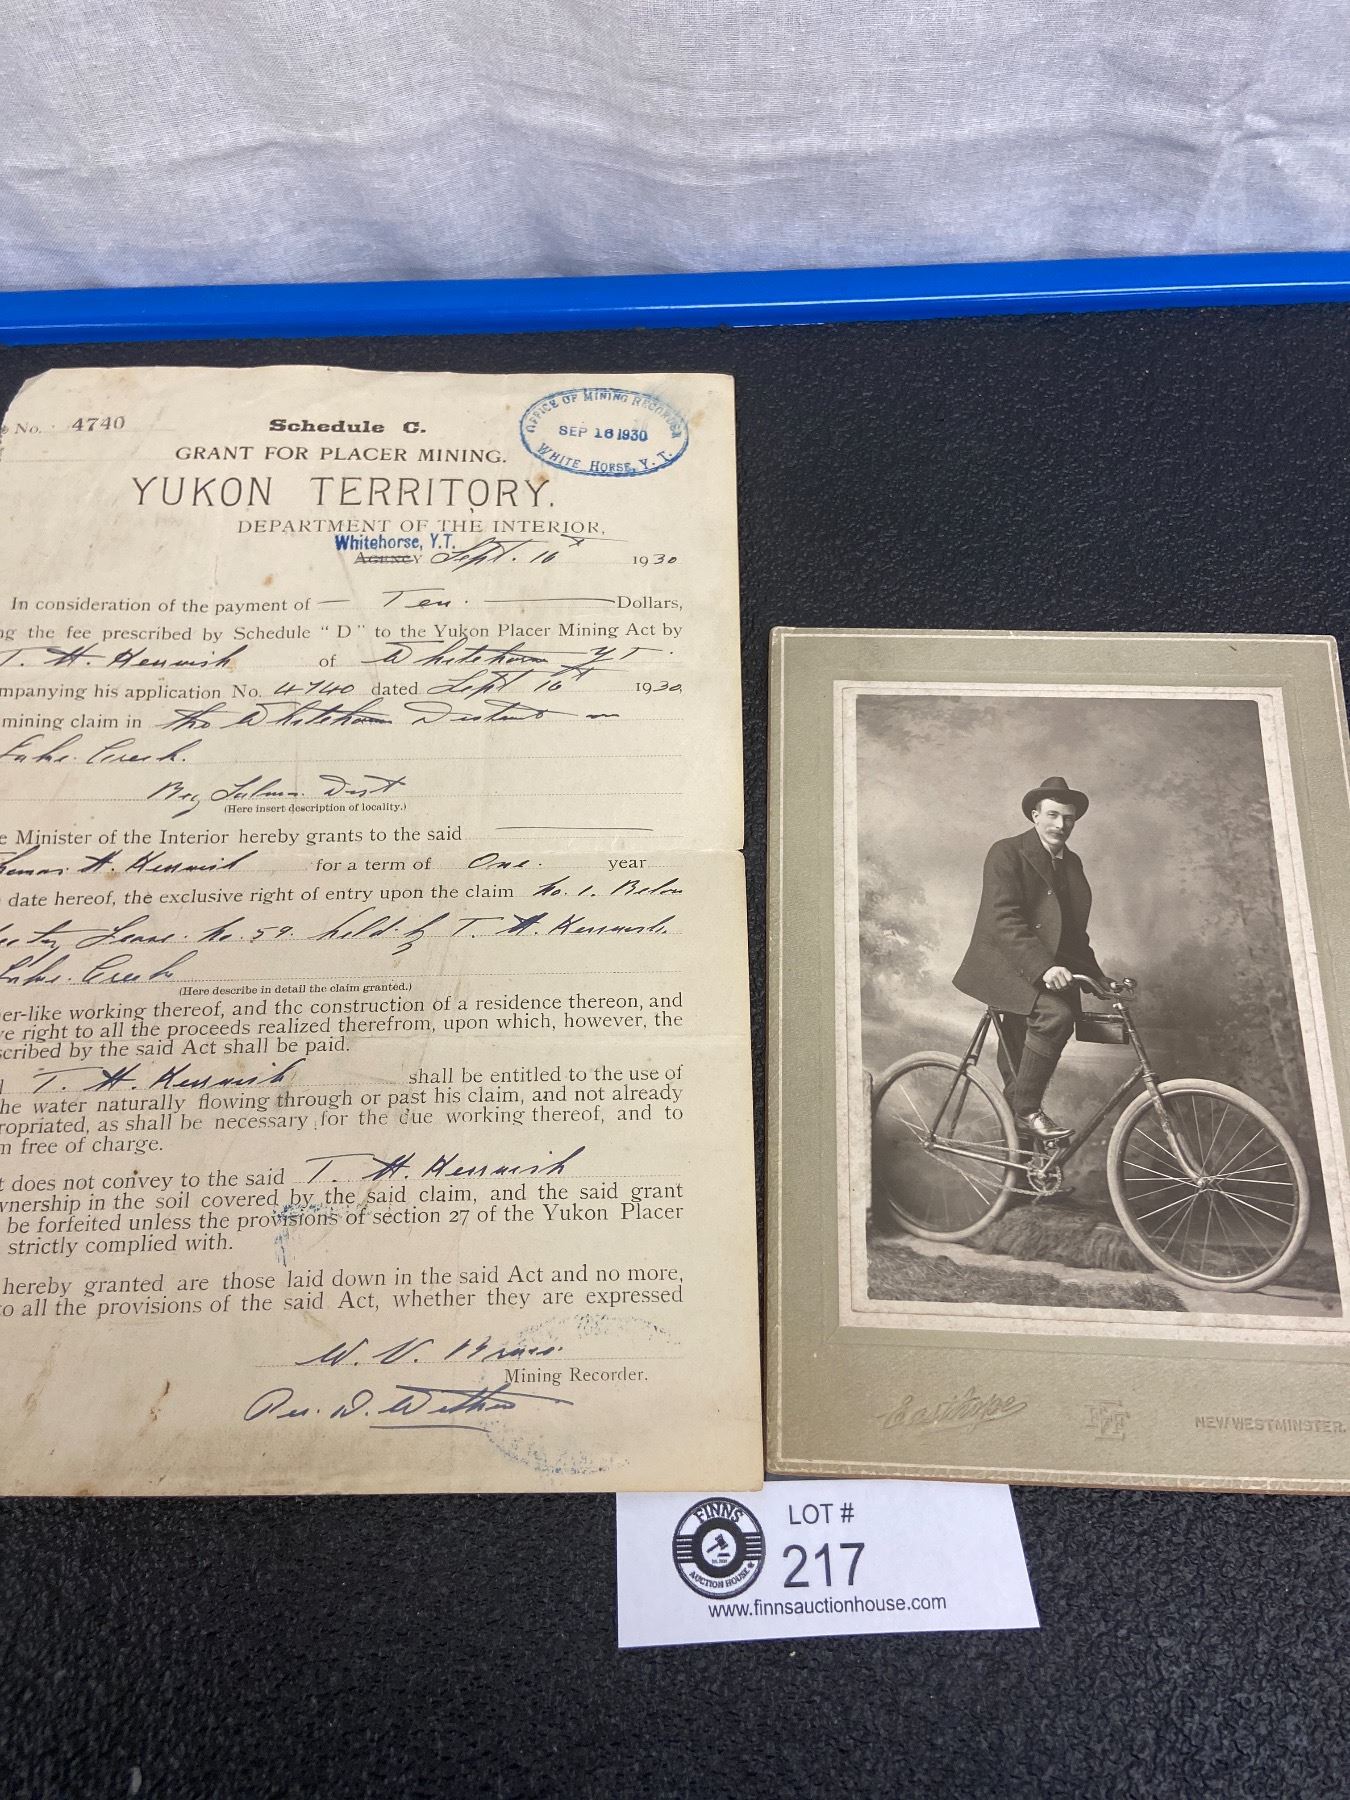 No. 4740
Schedule C.
OFFICE OF MINING RECORDER
SEP 16 1930
WHITE HORSE, Y. T.
GRANT FOR PLACER MINING.
YUKON TERRITORY.
DEPARTMENT OF THE INTERIOR,
Whitehorse, Y.T.
AGENCY Sept. 16th 1930
In consideration of the payment of Ten. Dollars,
the fee prescribed by Schedule "D" to the Yukon Placer Mining Act by
T. H. Kerruish of Whitehorse Y T.
mpanying his application No. 4740 dated Sept 16th 1930.
mining claim in the Whitehorse District on
Lake Creek.
Big Salmon Dist
(Here insert description of locality.)
e Minister of the Interior hereby grants to the said
Thomas H. Kerruish for a term of One. year
date hereof, the exclusive right of entry upon the claim No. 1. Below
Lease No. 59. held by T. H. Kerruish.
Lake Creek
(Here describe in detail the claim granted.)
er-like working thereof, and the construction of a residence thereon, and
ve right to all the proceeds realized therefrom, upon which, however, the
scribed by the said Act shall be paid.
T. H. Kerruish shall be entitled to the use of
he water naturally flowing through or past his claim, and not already
ropriated, as shall be necessary for the due working thereof, and to
m free of charge.
t does not convey to the said T. H. Kerruish
wnership in the soil covered by the said claim, and the said grant
be forfeited unless the provisions of section 27 of the Yukon Placer
strictly complied with.
hereby granted are those laid down in the said Act and no more,
to all the provisions of the said Act, whether they are expressed
W. V.
Mining Recorder.
Per. D.
Easthope
NEW WESTMINSTER.
FINNS
AUCTION HOUSE
LOT #
217
www.finnsauctionhouse.com